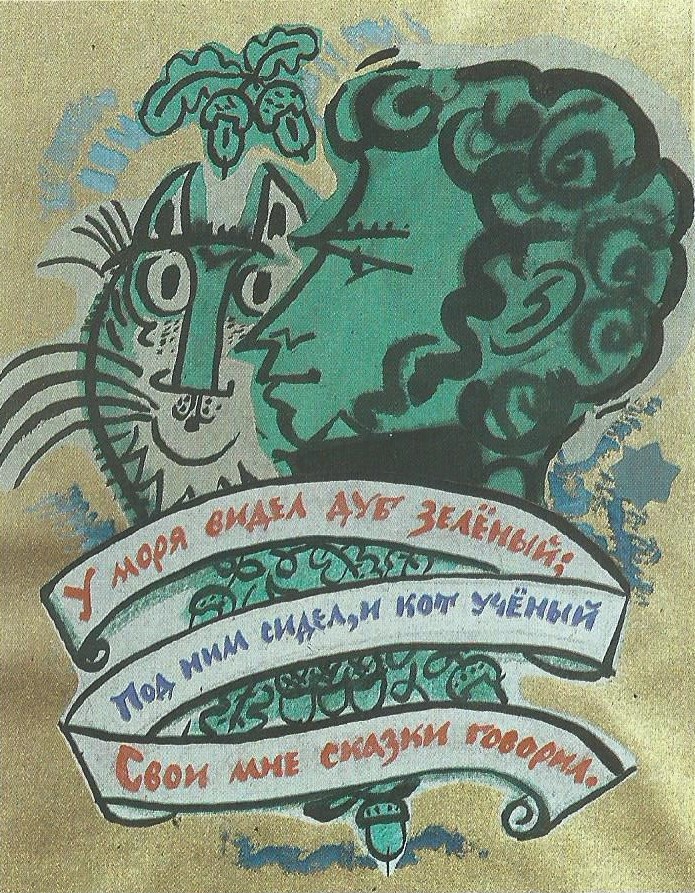 У моря видел дуб зелёный;
Под ним сидел, и кот учёный
Свои мне сказки говорил.